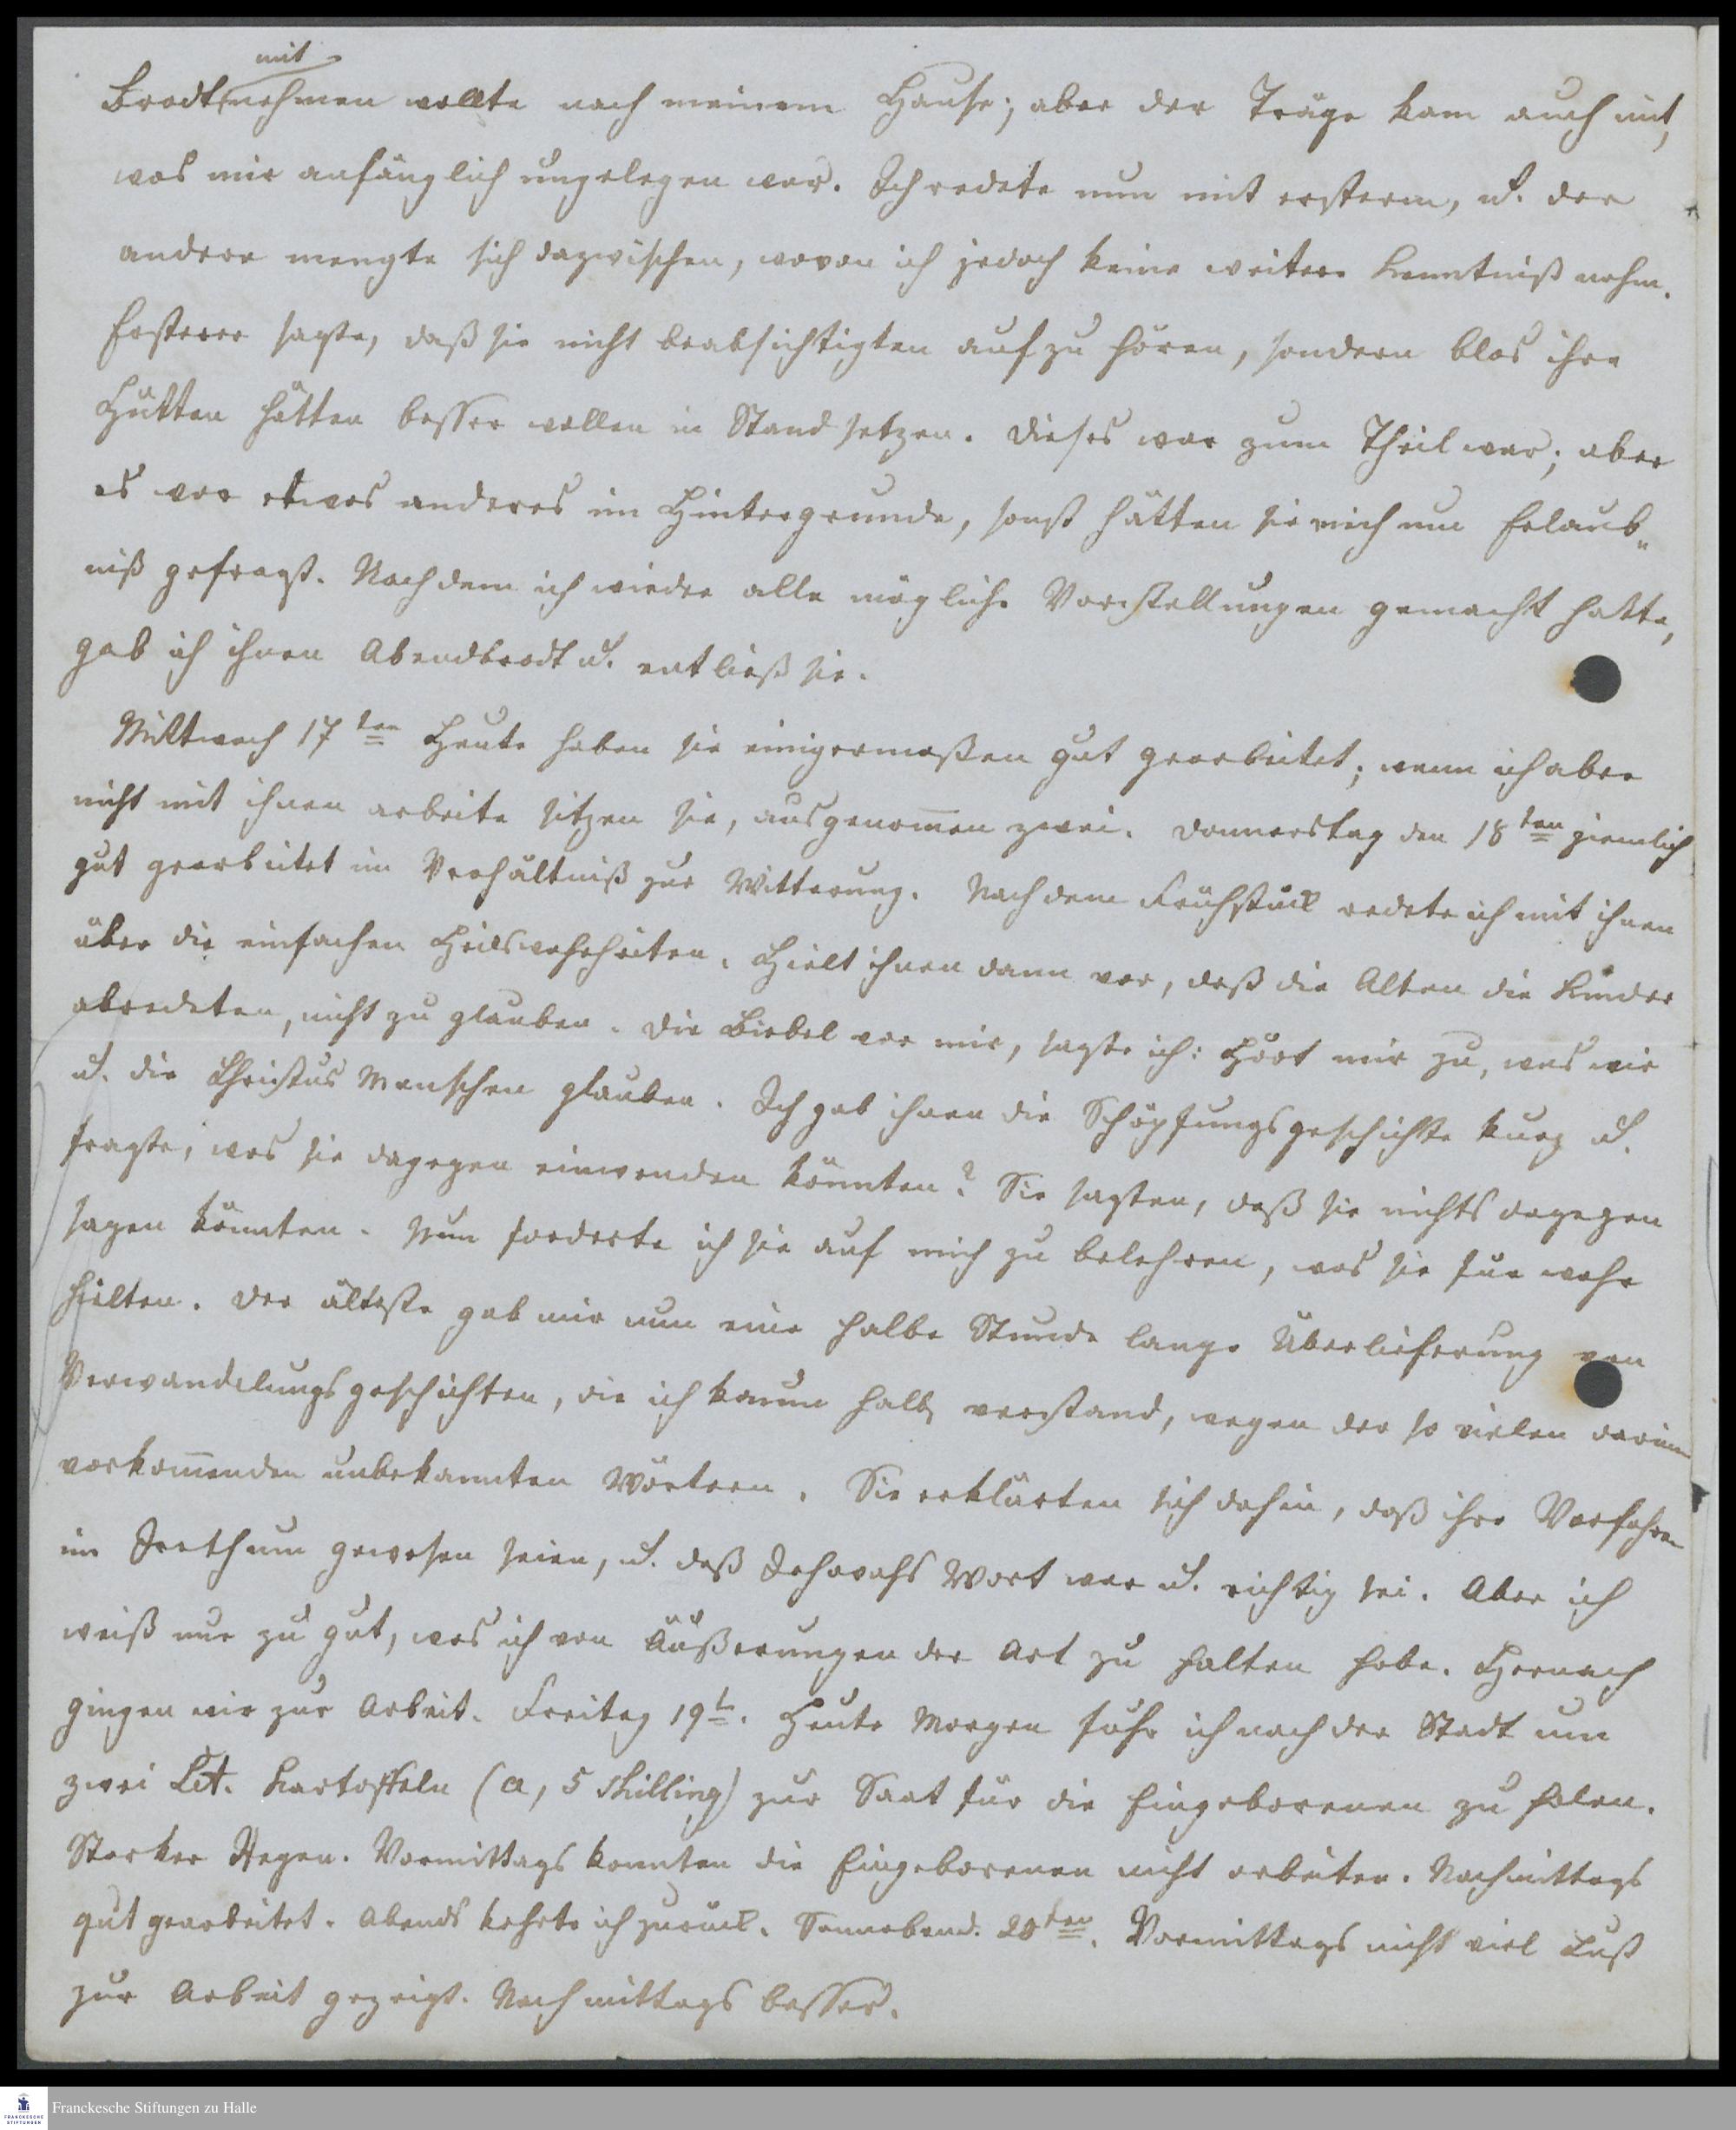 mit
Brodt nehmen wollte nach meinem Hause; aber der Träge kam auch mit,
was mir anfänglich ungelegen war. Ich redete nun mit ersterm, u. der
andere mengte sich dazwischen, wovon ich jedoch keine weitere Kenntniß nahm.
Ersterer sagte, daß sie nicht beabsichtigten aufzuhören, sondern blos ihre
Hütten hätten besser wollen in Stand setzen. Dieses war zum Theil war; aber
es war etwas anderes im Hintergrunde, sonst hätten sie mich um Erlaub„
niß gefragt. Nachdem ich wieder alle mögliche Vorstellungen gemacht hatte,
gab ich ihnen Abendbrodt u. entließ sie.
Mittwoch 17ten Heute haben sie einigermaßen gut gearbeitet; wenn ich aber
nicht mit ihnen arbeite sitzen sie, ausgenom̄en zwei. Donnerstag den 18ten ziemlich
gut gearbeitet im Verhältniß zur Witterung. Nach dem Frühstück redete ich mit ihnen
über die einfachen Heilswahrheiten. Hielt ihnen dann vor, daß die Alten die Kinder
abredeten, nicht zu glauben. Die Biebel vor mir, sagte ich: Hört mir zu, was wir
u. die Christus Menschen glauben. Ich gab ihnen die Schöpfungsgeschichte kurz u.
fragte, was sie dagegen einwenden könnten? Sie sagten, daß sie nichts dagegen
sagen könnten. Nun forderte ich sie auf mich zu belehren, was sie für wahr
hielten. Der älteste gab mir nun eine halbe Stunde lange Überlieferung von
Verwandelungsgeschichten, die ich kaum halb verstand, wegen der so vielen darinn
vorkom̄enden unbekannten Wörtern. Sie erklärten sich dahin, daß ihre Vorfahren
im Irrthum gewesen seien, u. daß Jehovahs Wort war u. richtig sei. Aber ich
weiß nur zu gut, was ich von Äüßerungen der Art zu halten habe. Hernach
gingen wir zur Arbeit. Freitag 19t. Heute Morgen fuhr ich nach der Stadt um
zwei Ct. Kartoffeln (a, 5 Shilling) zur Saat für die Eingeborenen zu holen.
Starker Regen. Vormittags konnten die Eingeborenen nicht arbeiten. Nachmittags
gut gearbeitet. Abends kehrte ich zurück. Sonnabend. 20ten. Vormittags nicht viel Lust
zur Arbeit gezeigt. Nachmittags besser.
Franckesche Stiftungen zu Halle
FRANCKESCHE
STIFTUNGEN